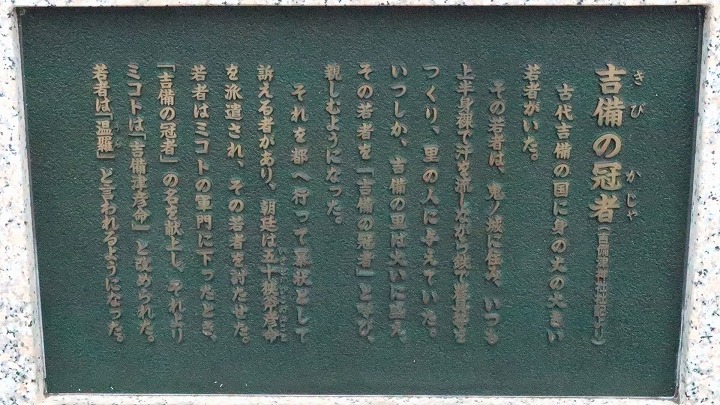 吉備の冠者
きび かじゃ
古代吉備の国に身の丈の大きい
若者がいた。
その若者は、鬼ノ城に住み、いつも
上半身裸で汗を流しながら鉄で
つくり、里の人に与えていた。
いつしか、吉備の里は大いに富え、
その若者を「吉備の冠者」と呼び、
親しむようになった。
それを都へ行って悪状として
訴える者があり、朝廷は五十狭芹彦命
を派遣され、その若者を討たせた。
若者はミコトの軍門に下ったとき、
「吉備の冠者」の名を献上し、それより
ミコトは「吉備津彦命」と改められた。
若者は「温羅」と言われるようになった。